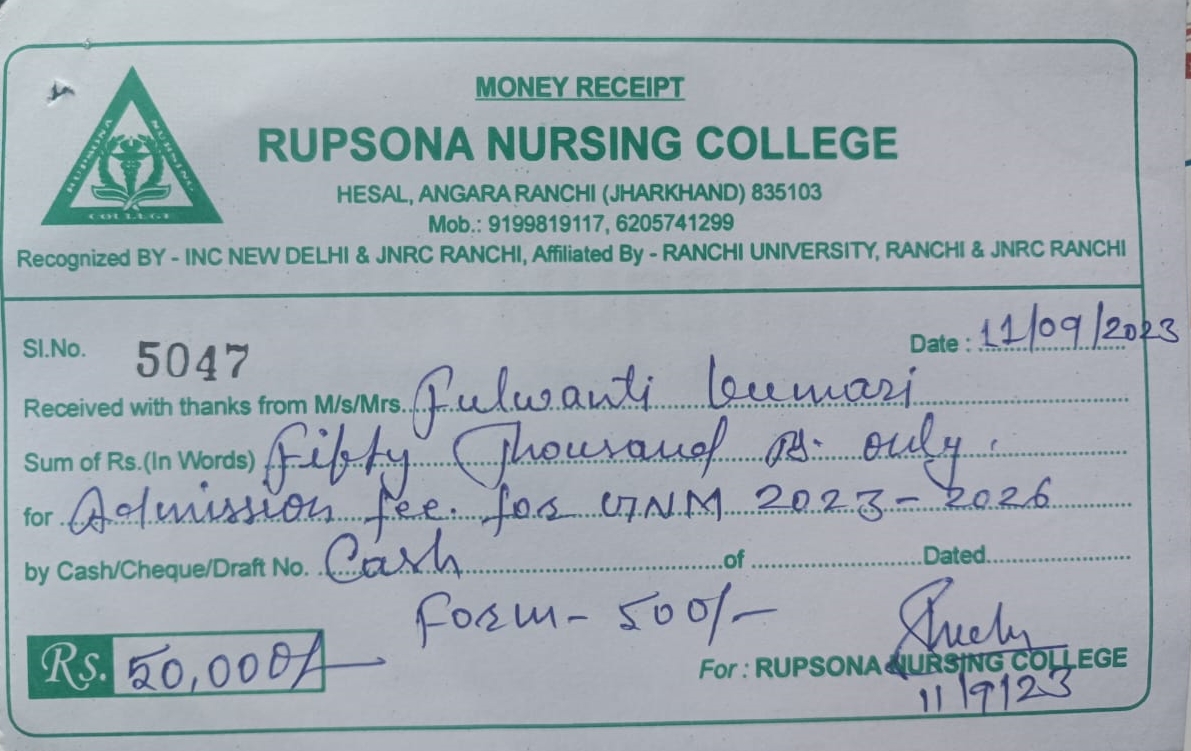 MONEY RECEIPT
RUPSONA NURSING COLLEGE
RUPSONA NURSING COLLEGE
HESAL, ANGARA RANCHI (JHARKHAND) 835103
Mob.: 9199819117, 6205741299
Recognized BY - INC NEW DELHI & JNRC RANCHI, Affiliated By - RANCHI UNIVERSITY, RANCHI & JNRC RANCHI
Sl.No. 5047 Date : 11/09/2023
Received with thanks from M/s/Mrs. Fulwanti kumari
Sum of Rs.(In Words) Fifty Thousand Rs. only.
for Admission fee. for GNM 2023-2026
by Cash/Cheque/Draft No. Cash of Dated
Form - 500/-
Rs. 50,000/-
For : RUPSONA NURSING COLLEGE
11/9/23